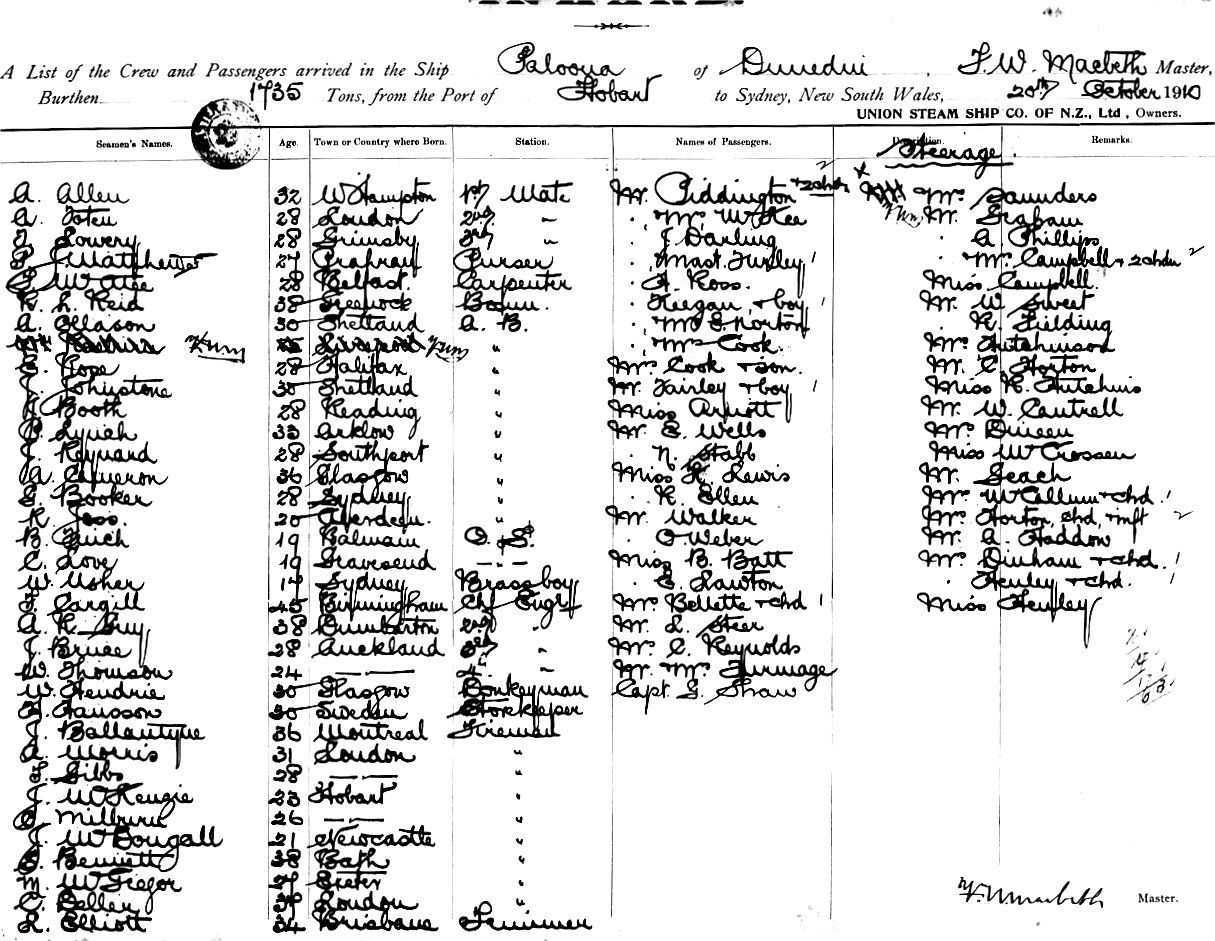 A List of the Crew and Passengers arrived in the Ship Paloona of Dunedin, F.W. Macbeth Master,
Burthen 1735 Tons, from the Port of Hobart to Sydney, New South Wales, 20th October 1910
UNION STEAM SHIP CO. OF N.Z., Ltd, Owners.
Seamen's Names. Age. Town or Country where Born. Station. Names of Passengers. Description. Remarks.
Steerage.
A. Allen 32 W Hampton 1st Mate Mr. Piddington + 2 chdn 2 Mrs Saunders
A. 28 London 2nd " " Mrs McKee Mr. Graham
Lowery 28 Grimsby 3rd " " J Darling " A. Phillips
Matthews 27 Prahran Purser " Mast. Turley 1 " Mrs Campbell + 2 chdn 2
28 Belfast Carpenter " A. Ross. Miss Campbell.
L. Reid 38 Greenock Bosun. " Keegan + boy 1 Mr. W. Sweet
A. Ollason 30 Shetland A. B. " Mrs E Norton " R. Fielding
Liverpool " " Mrs Cook. Mrs Hutchinson
Pope 28 Halifax " Mrs Cook + son. Mr. C. Horton
J. Johnstone 30 Shetland " Mr. Fairley + boy 1 Miss R. Hutchins
Booth 28 Reading " Miss Arnott Mr. W. Cantrell
Lynch 33 Arklow " Mr. E. Wells Mrs Dineen
J. Reynard 28 Southport " " N. Stabb Miss McCrossen
A. Cameron 36 Glasgow " Miss R. Lewis Mr. Geach
G. Booker 28 Sydney " " R. Ellen Mrs McCallum + chd. 1
R. Joss. 20 Aberdeen. " Mr. Walker Mrs Horton, chd, + inft 2
B. Finch 19 Balmain O. S. " O Weber Mr. A. Haddon
C. Love 19 Gravesend — " — Miss B. Batt Mrs Dinham + chd. 1
W. Usher 17 Sydney Brass boy " E. Lawton " Henley + chd. 1
Cargill 45 Birmingham Chf Engr Mrs Bellette + chd 1 Miss Henley
A. R. Guy 38 Dumbarton 2nd " Mr. L. Steer
J. Bruce 28 Auckland 3rd " Mrs C. Reynolds
W. Thomson 24 — " — 4th " Mr. Mrs Turmage
W. Hendrie 30 Glasgow Donkeyman Capt. G. Shaw
Hansson 30 Sweden Storekeeper
J. Ballantyne 36 Montreal Fireman
A. Morris 31 London "
Gibbs 28 — " — "
J. McKenzie 23 Hobart "
Milburn 26 — " — "
J. McDougall 21 Newcastle "
Bennett 38 Bath "
M. McGregor 27 Exeter "
C. Beller 37 London "
R. Elliott 34 Brisbane Trimmer
F.W. Macbeth Master.